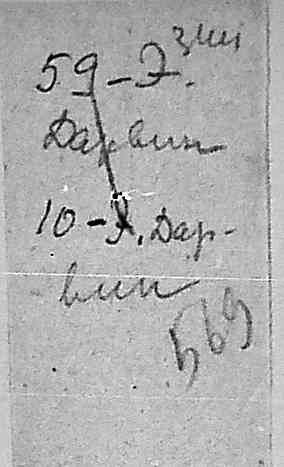 59-Э.
Дарвин
10-Э. Дар-
вин
569